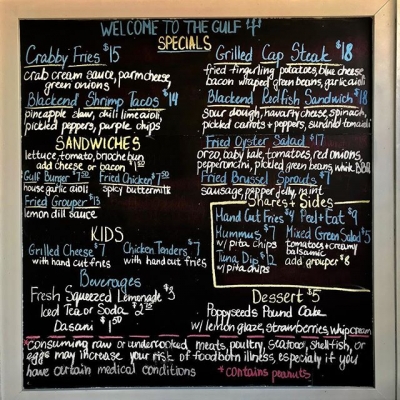 WELCOME TO THE GULF
SPECIALS
Crabby Fries $15
crab cream sauce, parm cheese,
green onions
Blackend Shrimp Tacos $14
pineapple slaw, chili lime aioli,
pickled peppers, purple chips
SANDWICHES
lettuce, tomato, brioche bun
add cheese or bacon $1.50
Gulf Burger $7.50 Fried Chicken $7.50
house garlic aioli spicy buttermilk
Fried Grouper $13
lemon dill sauce
KIDS
Grilled Cheese $7 Chicken Tenders $7
with hand cut fries with hand cut fries
Beverages
Fresh Squeezed Lemonade $3
Iced Tea or Soda $2.50
Dasani $1.50
Grilled Cap Steak $18
fried fingurling potatoes, blue cheese,
bacon wrapped green beans, garlic aioli
Blackend Redfish Sandwich $18
sour dough, havarty cheese, spinach,
pickled carrots + peppers, sundried tomato
Fried Oyster Salad $17
orzo, baby kale, tomatoes, red onions,
pepperoncini, pickled green beans, white BBQ
Fried Brussel Sprouts $7
sausage, pepper jelly, mint
Shares + Sides
Hand Cut Fries $4 Peel + Eat $9
Hummus $7 Mixed Green Salad $5
w/ pita chips tomatoes + creamy
balsamic
Tuna Dip $12 add grouper $8
w/ pita chips
Dessert $5
Poppyseeds Pound Cake
w/ lemon glaze, strawberries, whip cream
*consuming raw or undercooked meats, poultry, seafood, shell-fish, or
eggs may increase your risk of foodborn illness, especially if you
have certain medical conditions *contains peanuts